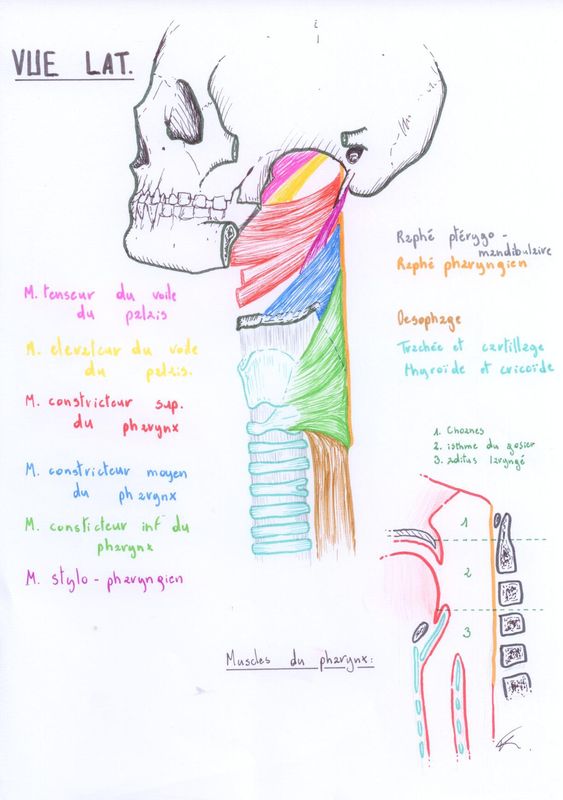 VUE LAT.
M. tenseur du voile
du palais
M. elevateur du voile
du palais.
M. constricteur sup.
du pharynx
M. constricteur moyen
du pharynx
M. constricteur inf du
pharynx
M. stylo-pharyngien
Raphé ptérygo-
mandibulaire
Raphé pharyngien
Oesophage
Trachée et cartillage
thyroïde et cricoïde
1. Choanes
2. isthme du gosier
3. aditus laryngé
1
2
3
Muscles du pharynx: